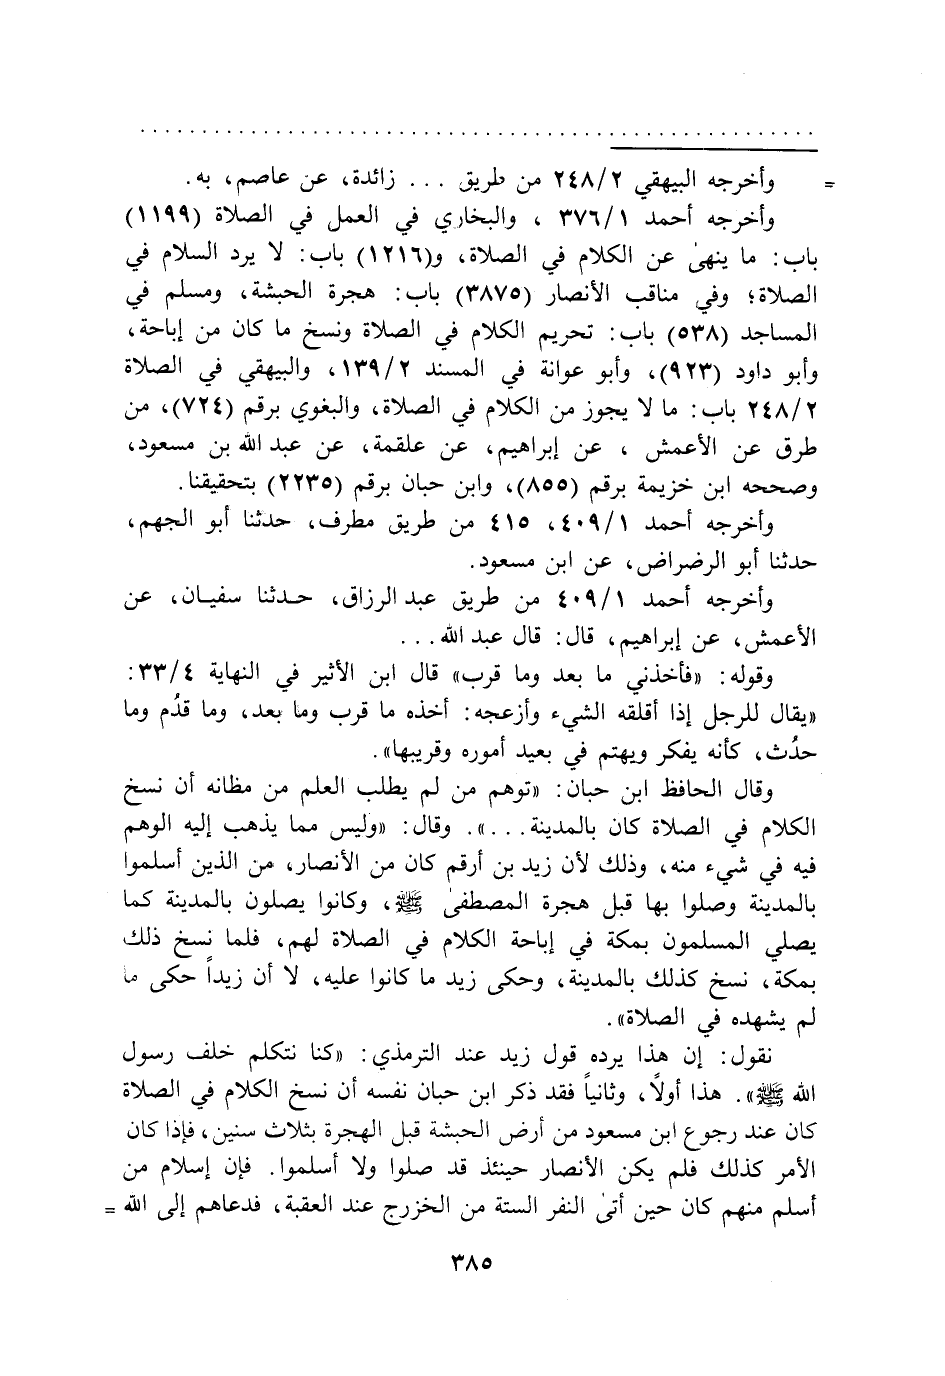 . . . . . . . . . . . . . . . . . . . . . . . . . . . . . . . . . . . . . . . . . . . . . . . . . . . . . .
= وأخرجه البيهقي ٢٤٨/٢ من طريق ... زائدة، عن عاصم، به.
وأخرجه أحمد ٣٧٦/١ ، والبخاري في العمل في الصلاة (١١٩٩)
باب: ما ينهىٰ عن الكلام في الصلاة، و(١٢١٦) باب: لا يرد السلام في
الصلاة؛ وفي مناقب الأنصار (٣٨٧٥) باب: هجرة الحبشة، ومسلم في
المساجد (٥٣٨) باب: تحريم الكلام في الصلاة ونسخ ما كان من إباحة،
وأبو داود (٩٢٣)، وأبو عوانة في المسند ١٣٩/٢، والبيهقي في الصلاة
٢٤٨/٢ باب: ما لا يجوز من الكلام في الصلاة، والبغوي برقم (٧٢٤)، من
طرق عن الأعمش ، عن إبراهيم، عن علقمة، عن عبد الله بن مسعود،
وصححه ابن خزيمة برقم (٨٥٥)، وابن حبان برقم (٢٢٣٥) بتحقيقنا.
وأخرجه أحمد ٤٠٩/١، ٤١٥ من طريق مطرف، حدثنا أبو الجهم،
حدثنا أبو الرضراض، عن ابن مسعود.
وأخرجه أحمد ٤٠٩/١ من طريق عبد الرزاق، حدثنا سفيان، عن
الأعمش، عن إبراهيم، قال: قال عبد الله ...
وقوله: «فأخذني ما بعد وما قرب» قال ابن الأثير في النهاية ٣٣/٤:
«يقال للرجل إذا أقلقه الشيء وأزعجه: أخذه ما قرب وما بعد، وما قدُم وما
حدُث، كأنه يفكر ويهتم في بعيد أموره وقريبها».
وقال الحافظ ابن حبان: «توهم من لم يطلب العلم من مظانه أن نسخ
الكلام في الصلاة كان بالمدينة...». وقال: «وليس مما يذهب إليه الوهم
فيه في شيء منه، وذلك لأن زيد بن أرقم كان من الأنصار، من الذين أسلموا
بالمدينة وصلوا بها قبل هجرة المصطفىٰ ﷺ، وكانوا يصلون بالمدينة كما
يصلي المسلمون بمكة في إباحة الكلام في الصلاة لهم، فلما نسخ ذلك
بمكة، نسخ كذلك بالمدينة، وحكى زيد ما كانوا عليه، لا أن زيداً حكى ما
لم يشهده في الصلاة».
نقول: إن هذا يرده قول زيد عند الترمذي: «كنا نتكلم خلف رسول
الله ﷺ». هذا أولاً، وثانياً فقد ذكر ابن حبان نفسه أن نسخ الكلام في الصلاة
كان عند رجوع ابن مسعود من أرض الحبشة قبل الهجرة بثلاث سنين، فإذا كان
الأمر كذلك فلم يكن الأنصار حينئذ قد صلوا ولا أسلموا. فإن إسلام من
أسلم منهم كان حين أتىٰ النفر الستة من الخزرج عند العقبة، فدعاهم إلى الله =
٣٨٥